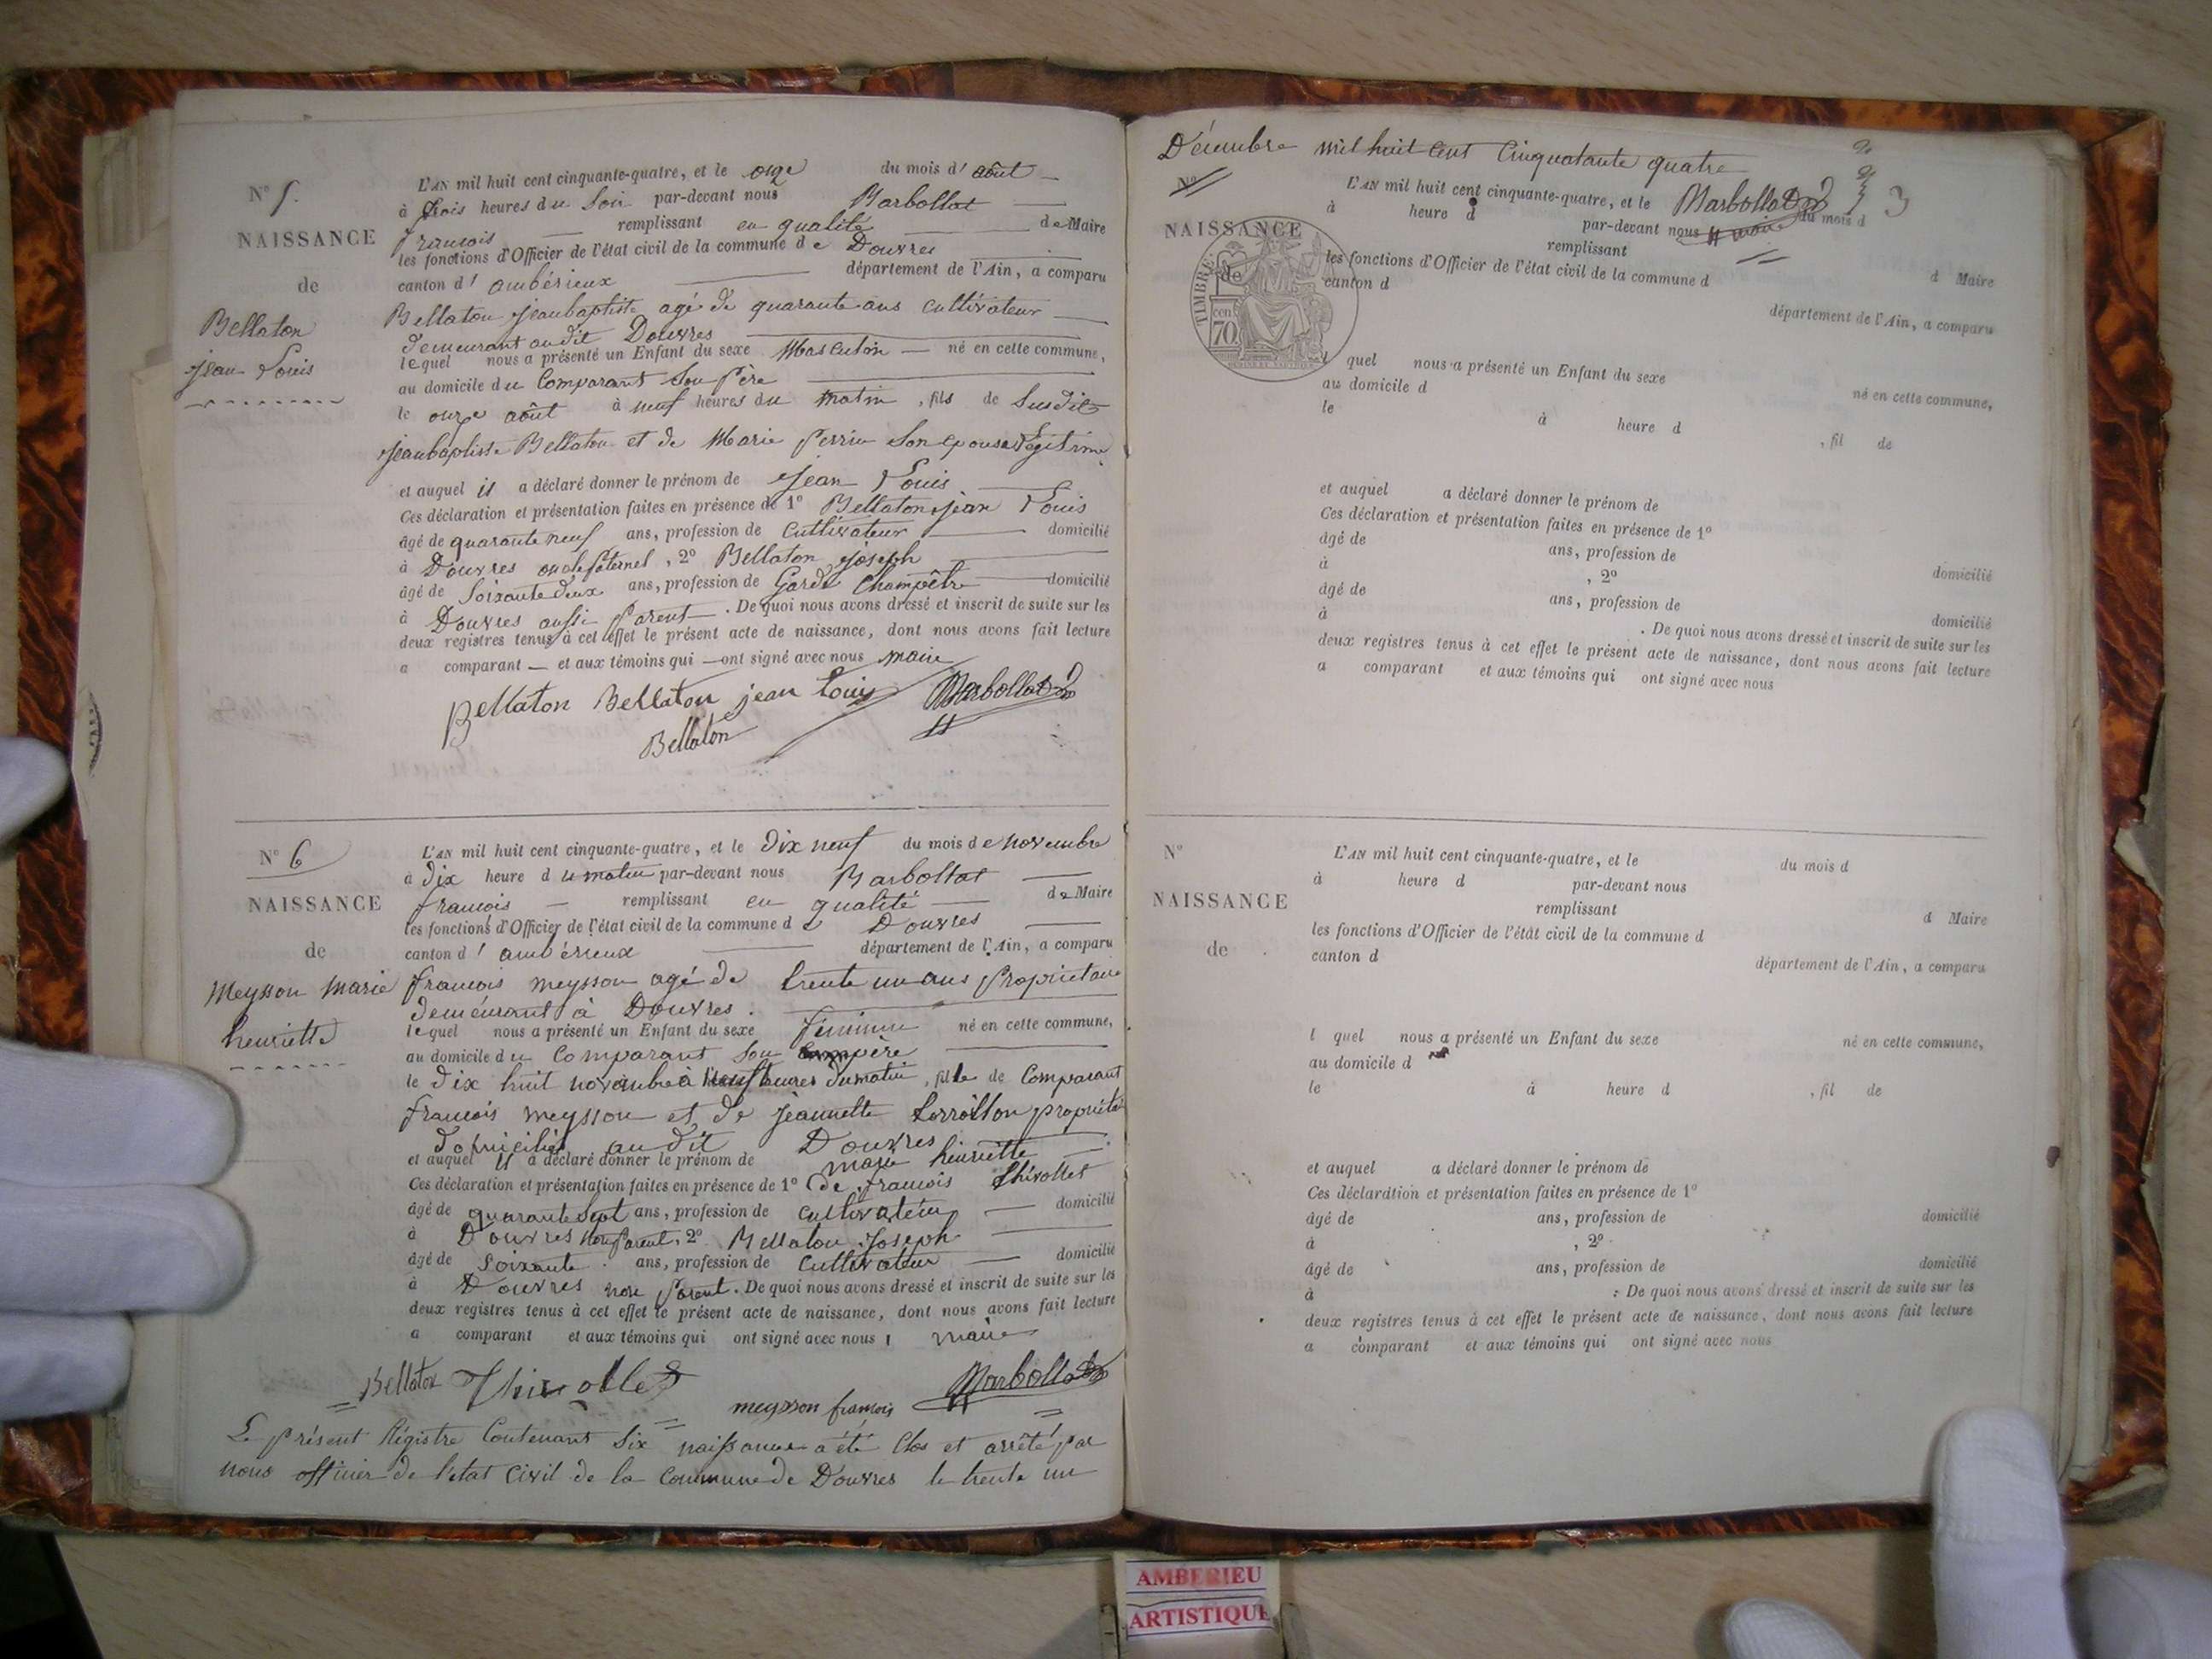 N° 5.
NAISSANCE
de
Bellaton
jean Louis
L'AN mil huit cent cinquante-quatre, et le onze du mois d'août
à trois heures du Soir par-devant nous Barbollat
francois remplissant en qualité de Maire
les fonctions d'Officier de l'état civil de la commune de Douvres
canton d'ambérieux département de l'Ain, a comparu
Bellaton jeanbaptiste agé de quarante ans cultivateur
demeurant audit Douvres
lequel nous a présenté un Enfant du sexe Masculin né en cette commune,
au domicile du Comparant Son père
le onze août à neuf heures du matin, fils de Susdit
jeanbaptiste Bellaton et de Marie Perrin Son epouse légitime
et auquel il a déclaré donner le prénom de jean Louis
Ces déclaration et présentation faites en présence de 1° Bellaton jean Louis
âgé de quarante neuf ans, profession de Cultivateur domicilié
à Douvres oncle paternel, 2° Bellaton joseph
âgé de Soixante deux ans, profession de Garde Champêtre domicilié
à Douvres aussi parent. De quoi nous avons dressé et inscrit de suite sur les
deux registres tenus à cet effet le présent acte de naissance, dont nous avons fait lecture
a comparant et aux témoins qui ont signé avec nous maire
Bellaton Bellaton jean Louis Barbollat
Bellaton
N° 6
NAISSANCE
de
Meysson Marie
henriette
L'AN mil huit cent cinquante-quatre, et le dix neuf du mois de novembre
à dix heure du matin par-devant nous Barbollat
francois remplissant en qualité de Maire
les fonctions d'Officier de l'état civil de la commune d Douvres
canton d'ambérieux département de l'Ain, a comparu
francois meysson agé de trente un ans propriétaire
demeurant à Douvres.
lequel nous a présenté un Enfant du sexe féminin né en cette commune,
au domicile du Comparant Son père
le dix huit novembre à neuf heures du matin, fille de Comparant
francois meysson et de jeannette
domiciliés au dit Douvres
et auquel il a déclaré donner le prénom de marie henriette
Ces déclaration et présentation faites en présence de 1° de francois thivollet
âgé de quarante sept ans, profession de cultivateur domicilié
à Douvres non parent, 2° Bellaton joseph
âgé de Soixante ans, profession de Cultivateur domicilié
à Douvres non parent. De quoi nous avons dressé et inscrit de suite sur les
deux registres tenus à cet effet le présent acte de naissance, dont nous avons fait lecture
a comparant et aux témoins qui ont signé avec nous maire
Bellaton Thivollet meysson francois Barbollat
Le présent Régistre Contenant Six naissances a été Clos et arrêté par
nous officier de l'état Civil de la Commune de Douvres le trente un
Décembre mil huit cent Cinquatante quatre
Barbollat
maire
3
N°
NAISSANCE
de
TIMBRE
cen
70
L'AN mil huit cent cinquante-quatre, et le du mois d
à heure d par-devant nous
remplissant d Maire
les fonctions d'Officier de l'état civil de la commune d
canton d département de l'Ain, a comparu
l quel nous a présenté un Enfant du sexe né en cette commune,
au domicile d
le à heure d , fil de
et auquel a déclaré donner le prénom de
Ces déclaration et présentation faites en présence de 1°
âgé de ans, profession de domicilié
à , 2°
âgé de ans, profession de domicilié
à . De quoi nous avons dressé et inscrit de suite sur les
deux registres tenus à cet effet le présent acte de naissance, dont nous avons fait lecture
a comparant et aux témoins qui ont signé avec nous
N°
NAISSANCE
de
L'AN mil huit cent cinquante-quatre, et le du mois d
à heure d par-devant nous
remplissant d Maire
les fonctions d'Officier de l'état civil de la commune d
canton d département de l'Ain, a comparu
l quel nous a présenté un Enfant du sexe né en cette commune,
au domicile d
le à heure d , fil de
et auquel a déclaré donner le prénom de
Ces déclaration et présentation faites en présence de 1°
âgé de ans, profession de domicilié
à , 2°
âgé de ans, profession de domicilié
à : De quoi nous avons dressé et inscrit de suite sur les
deux registres tenus à cet effet le présent acte de naissance, dont nous avons fait lecture
a comparant et aux témoins qui ont signé avec nous
AMBERIEU
ARTISTIQUE